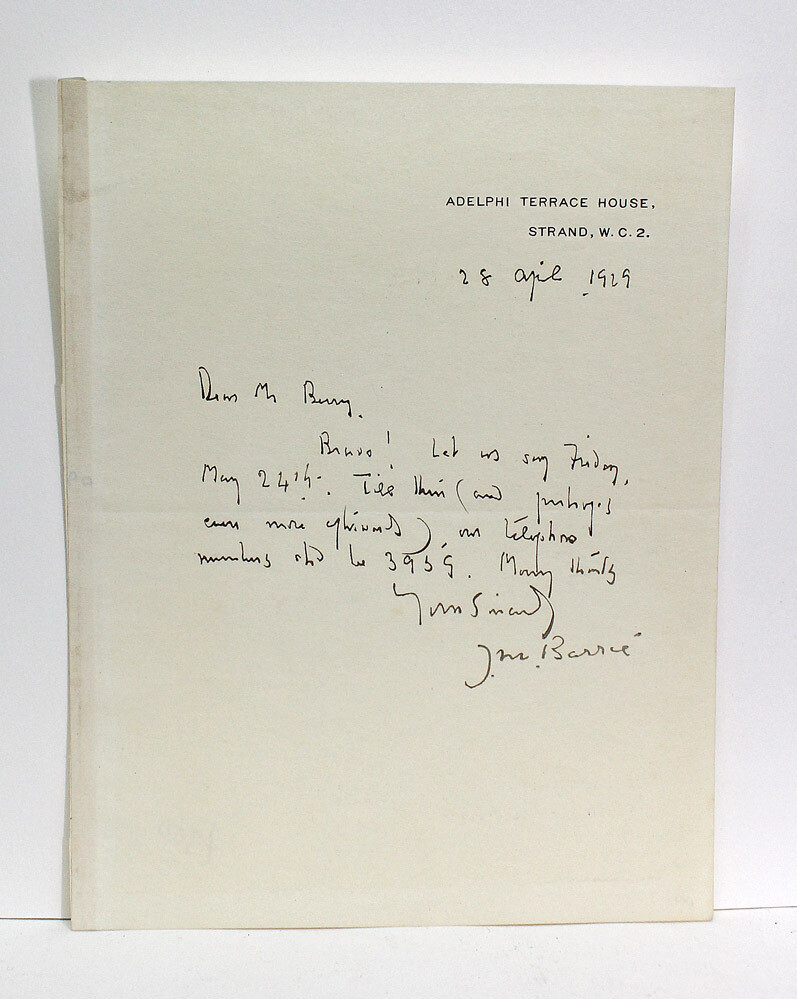 ADELPHI TERRACE HOUSE,
STRAND, W. C. 2.
28 April 1929
Dear Mr Berry.
Bravo! Let us say Friday,
May 24th. Till then (and perhaps
even more afterwards), our telephone
numbers shd be 3959. Many thanks
Yours Sincerely
J. M. Barrie